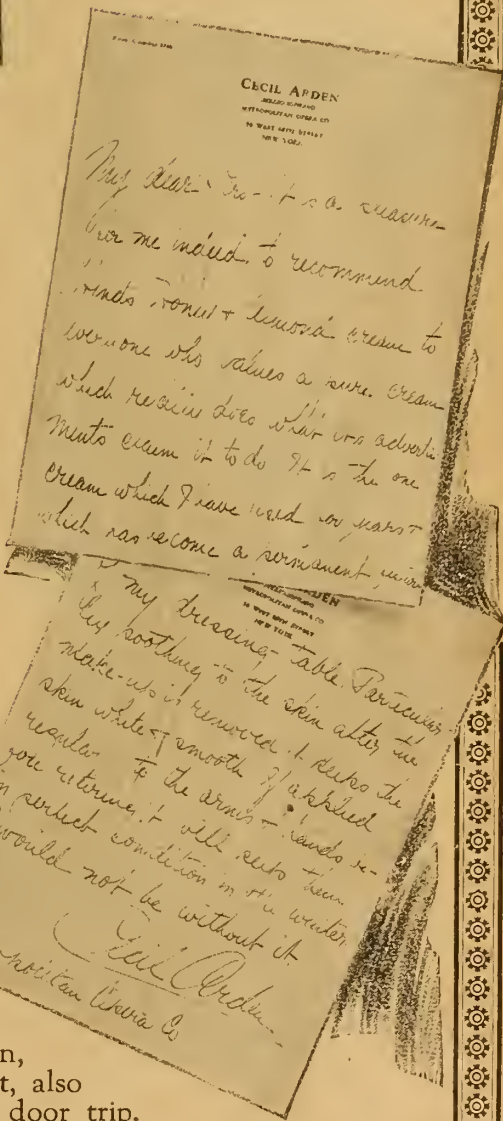 CECIL ARDEN
MEZZO SOPRANO
METROPOLITAN OPERA CO
NEW YORK
My dear it is a pleasure
for me indeed to recommend
Hinds Honey + Almond cream to
everyone who values a pure cream
which really does what its advertise
ments claim it to do It is the one
cream which I have used for years +
which has become a permanent
my dressing table. Particular
ly soothing to the skin after the
make-up is removed it keeps the
skin white & smooth If applied
regular to the arms + hands
you retiring it will keep them
in perfect condition in the winter
would not be without it.
Cecil Arden
Metropolitan Opera Co
ARDEN
METROPOLITAN OPERA CO
NEW YORK
n,
t, also
door trip.